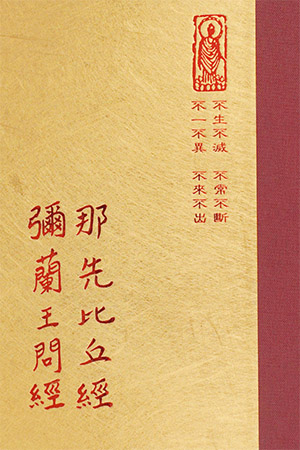 不生不滅　不常不斷
不一不異　不來不出
那先比丘經
彌蘭王問經